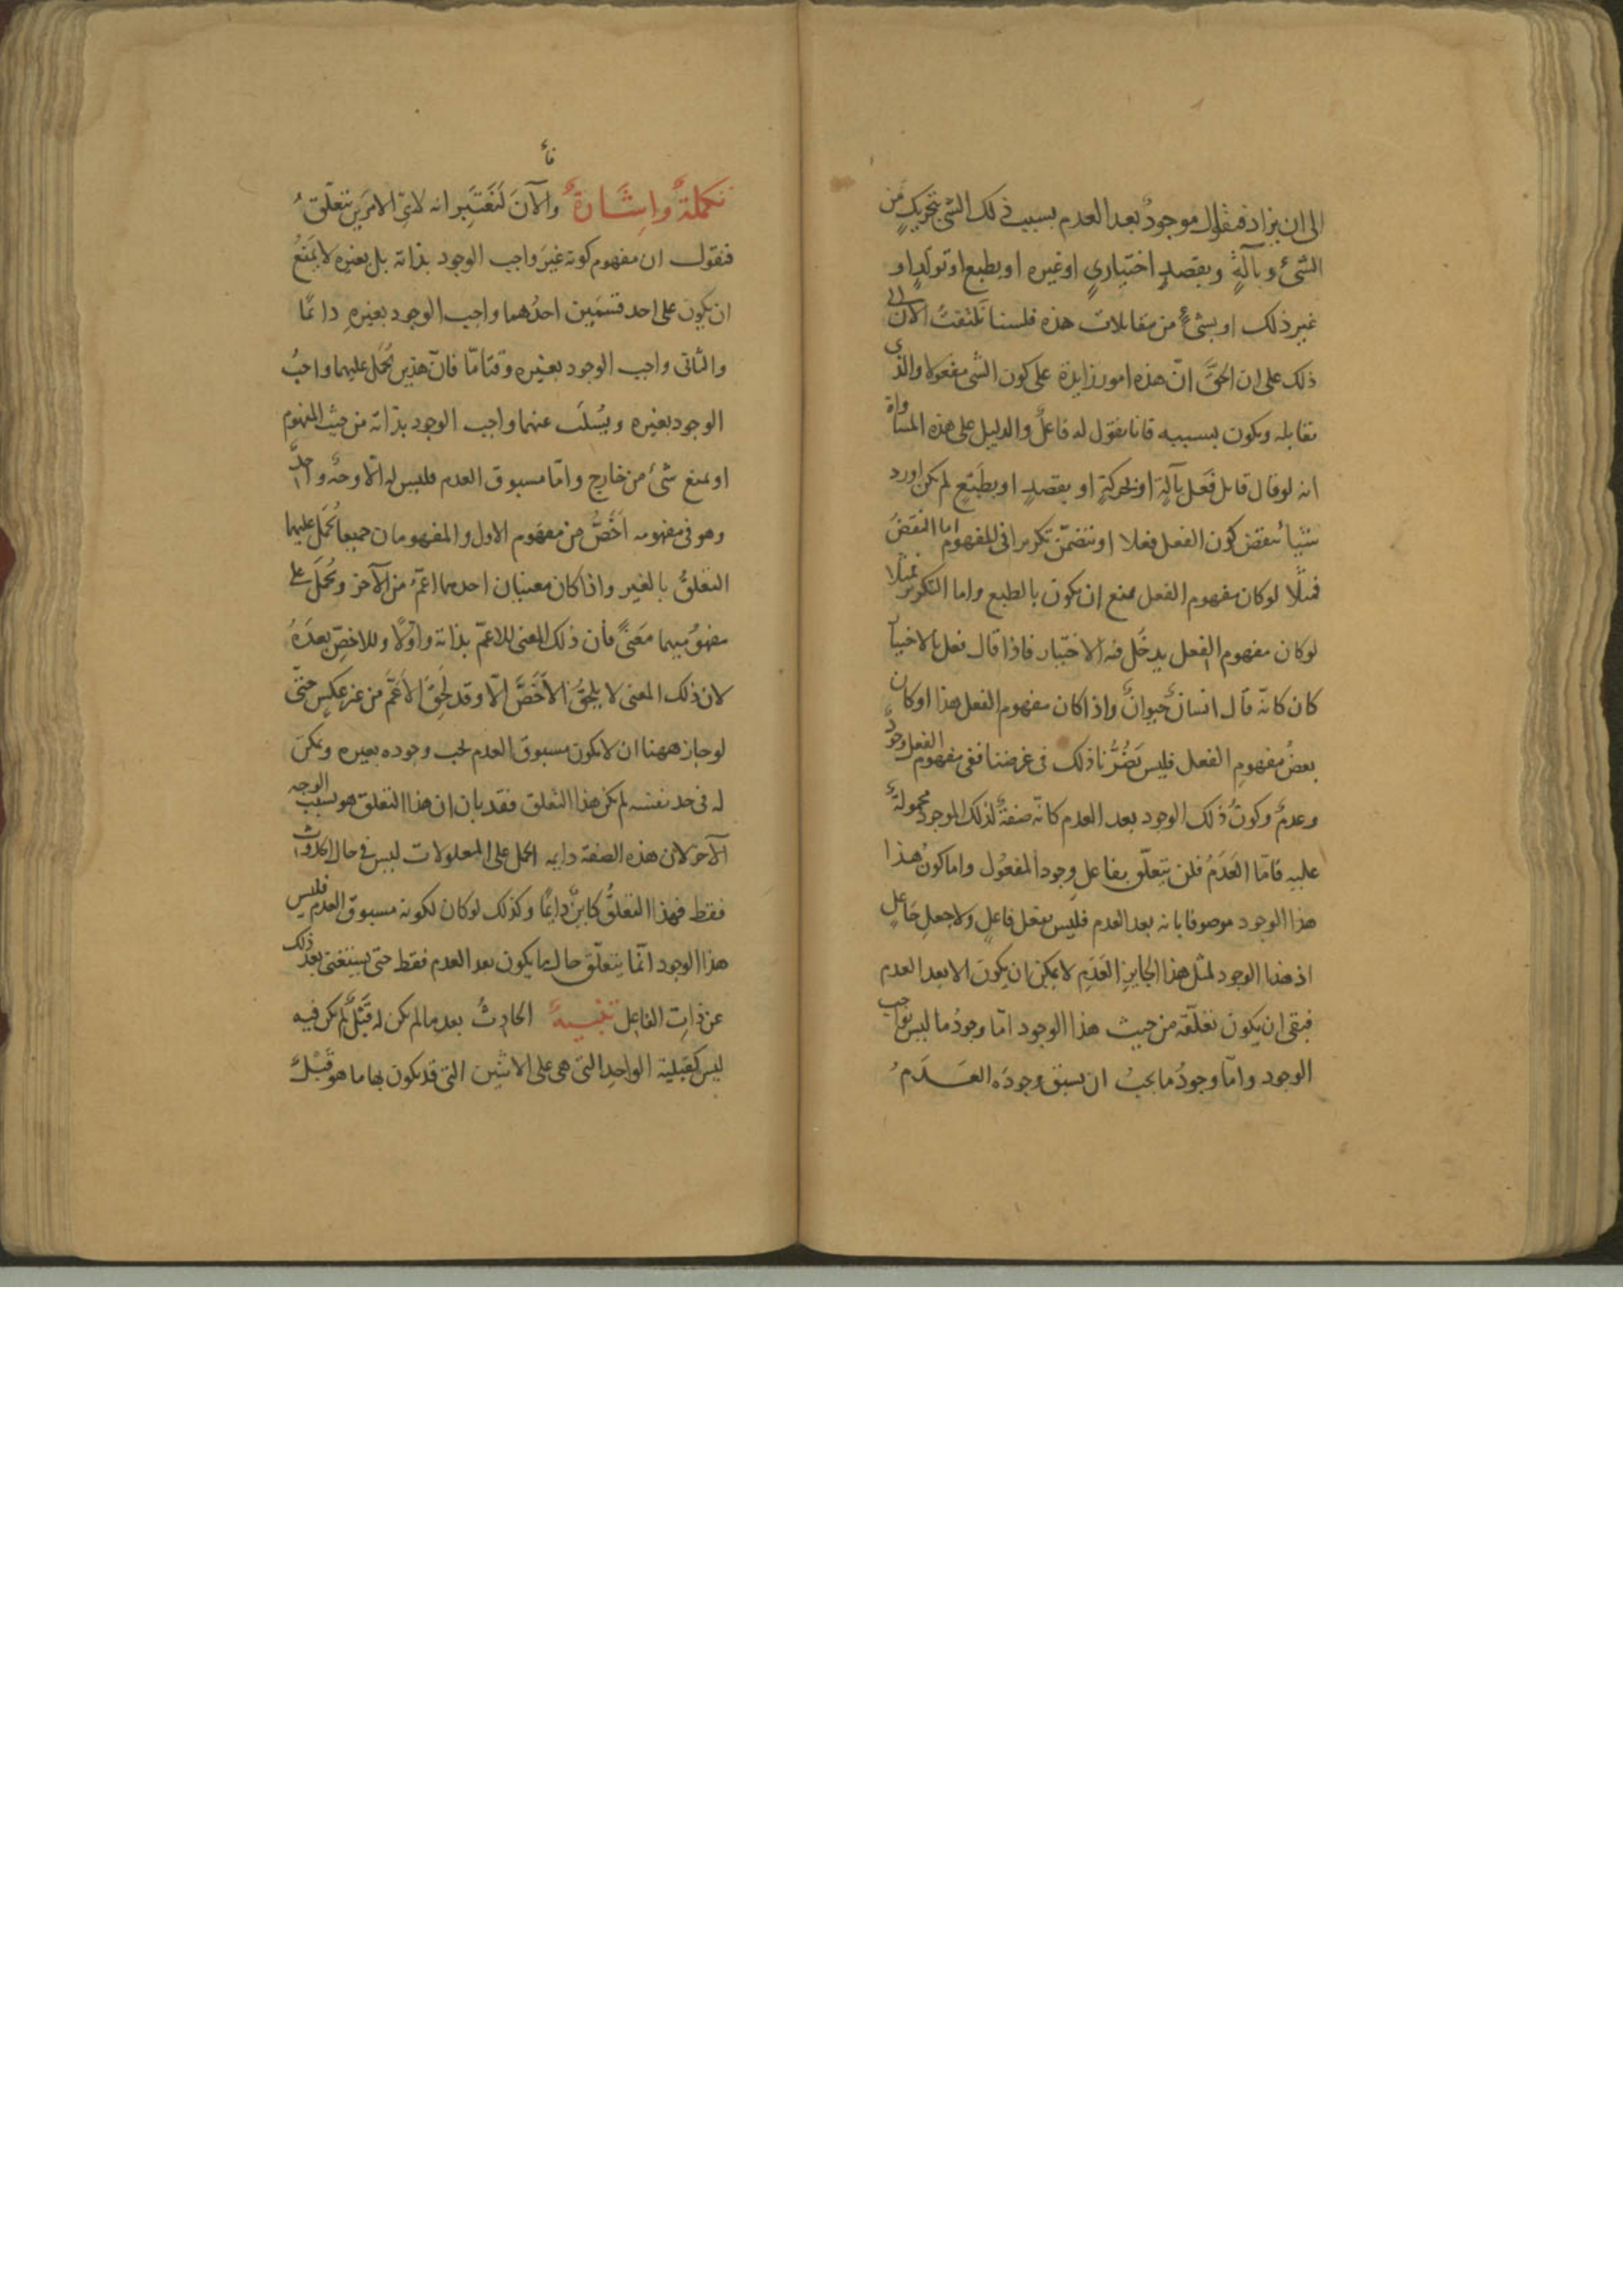 الى ان يزاد فيقال موجودٌ بعد العدم بسبب ذلك الشئ بتحريكٍ من
الشئ وبآلةٍ وبقصدٍ اختياريٍ او غيره او بطبع او تولّدٍ او
غير ذلك او بشئٍ من مقابلات هذه فلسنا نلتفت الآن الى
ذلك على ان الحقَّ انّ هذه امور زايدة على كون الشئ مفعولا والذى
يقابله ويكون بسببه فانا نقول له فاعلٌ والدليل على هذه المساواة
انه لو قال قايل فَعَل بآلةٍ او بحركةٍ او بقصدٍ او بطبعٍ لم يكن اورد
شيئا ينقض كون الفعل فعلا او يتضمّن تكريرا فى المفهوم اما النقض
فمثلًا لو كان مفهوم الفعل يمنع ان يكون بالطبع واما التكرير فمثلًا
لو كان مفهوم الفعل يدخُل فيه الاختيار فاذا قال فعل بالاختيار
كان كانه قال انسانٌ حيوانٌ واذا كان مفهوم الفعل هذا او كان
بعضُ مفهوم الفعل فليس يَضُرُّنا ذلك فى غرضنا ففى مفهوم الفعل وجودٌ
وعدمٌ وكونُ ذلك الوجود بعد العدم كانّه صفةٌ لذلك الموجود محمولةٌ
عليه فامّا العَدَمُ فلن يتعلّق بفاعل وجود المفعُول واما كونُ هذا
هذا الوجود موصوفا بانه بعد العدم فليس بفعل فاعلٍ ولا جعلِ جَاعلٍ
اذ هذا الوجود لمثل هذا الجايز العَدَمِ لا يمكن ان يكون الا بعد العدم
فبقى ان يكون تعلّقه من حيث هذا الوجود امّا وجودُ ما ليس بواجب
الوجود وامّا وجودُ ما يجبُ ان يسبق وجودَه العَدَمُ
تكملةٌ واِشَارةٌ والآنَ لنَعْتَبِر انه لاىّ الامرين يتعلّقُ
فنقول ان مفهوم كونه غيرَ واجب الوجود بذاته بل بغيره لا يمنَعُ
ان يكون على احد قسمَين احدُهما واجب الوجود بغيرهِ دائمًا
والثانى واجب الوجود بغيره وقتًا مّا فانّ هذين يُحمَل عليهما واجبُ
الوجود بغيره ويُسْلَب عنهما واجب الوجود بذاته من حيث المفهوم
او يمنع شئ من خارج وامّا مسبوق العدم فليس له الّا وجهٌ واحدٌ
وهو فى مفهومه اَخَصُّ من مفهوم الاول والمفهومان جميعا يُحمَل عليهما
التعلقُ بالغير واذا كان معنيان احدهما اعَمُّ من الآخر ويُحمَلُ على
مفهومَيهما معَنىً فان ذلك المعنى للاعمّ بذاته واوّلًا وللاخصّ بعدَهُ
لان ذلك المعنى لا يلحقُ الاَخَصَّ الّا وقد لَحِقَ الاَعَمَّ من غير عكسٍ حتّى
لو جاز ههنا ان لا يكون مسبوقَ العدم يجب وجوده بغيره ويمكن
له فى حد نفسه لم يكن هذا التعلق فقد بان ان هذا التعلق هو بسبب الوجه
الآخر لان هذه الصفة دايمه الحمل على المعلولات ليس فى حال الحدوث
فقط فهذا التعلقُ كاينٌ دايمًا وكذلك لو كان لكونه مسبوق العدم فليس
هذا الوجود انّما يتعلّق حال ما يكون بعد العدم فقط حتى يستغنى بعد ذلك
عن ذات الفاعل تنبيهٌ الحادِثُ بعد ما لم يكن له قَبْلٌ لم يكن فيه
ليس كقبلية الواحِدِ التى هى على الاثنَين التى قد يكون بها ما هو قَبْلٌ